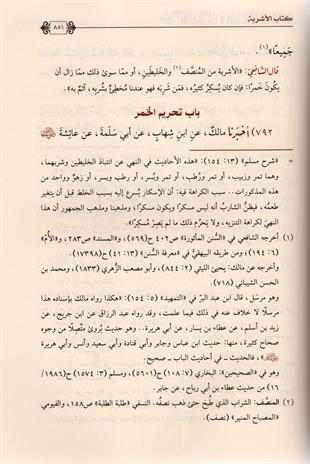 كتاب الأشربة
٨٥٦
جَمِيعًا»(١).
قال الشافِعِيُّ: «الأشربة من المُنَصَّف(٢) والخَلِيطَينِ، أو ممّا سوئ ذلك ممّا زال أن
يكُونَ خَمرًا: فإن كان يُسكِرُ كثيرُه، فمَن شَرِبَه فهو عندنا مُخطِئٌ بشُربِه، آثمٌ به».
باب تحريم الخمر
٧٩٢) أخبَرنا مالكٌ، عنِ ابنِ شِهابٍ، عن أبي سَلَمةَ، عن عائشةَ
= «شرح مسلم» (١٣: ١٥٤): «هذه الأحاديث في النهي عن انتباذ الخليطين وشربهما،
وهما تمر وزبيب، أو تمر ورُطَب، أو تمر وبُسر، أو رطب وبسر، أو زهوٌ وواحد من
هذه المذكورات.. سبب الكراهة فيه: أن الإسكار يُسرع إليه بسبب الخلط قبل أن يتغير
طعمُه، فيظنُّ الشاربُ أنه ليس مسكرًا ويكون مسكرًا؛ ومذهبنا ومذهب الجمهور أن هذا
النهيَ لكراهة التنزيه، ولا يحرم ذلك ما لم يَصِرْ مُسكرًا».
(١) أخرجه الشافعي في «السُّنن المأثورة» ص٤٠٢ ح(٥٦٩)، و«المسند» ص٢٨٣، و«الأُمّ»
(٦: ١٩٤)؛ ومن طريقه البيهقيُّ في «معرفة السُّنن» (١٣: ٤١) ح(١٧٣٩٨).
وأخرجه عن مالك: يحيىٰ الليثي (٢: ٨٤٤)، وأبو مصعب الزُّهري (١٨٣٣)، ومحمد بن
الحسن الشيباني (٧١٨).
وهو مرسَل، قال ابن عبد البرّ في «التمهيد» (٥: ١٥٤): «هكذا رواه مالك بإسناده هذا
مرسلًا لا خلاف عنه في ذلك فيما علمت، وقد رواه عبد الرزاق عن ابن جريج، عن
زيد بن أسلم، عن عطاء بن يسار، عن أبي هريرة.. وهو حديث يُروىٰ متَّصِلًا من وجوه
صحاح كثيرة، منها: حديث ابن عباس وجابر وأبي قتادة وأبي سعيد وأنس وأبي هريرة
»، فالحديث ـ في أحاديث الباب ـ صحيح.
وهو في «الصحيحين»: البخاري (٧: ١٠٨) ح(٥٦٠١)، ومسلم (٣: ١٥٧٤) ح(١٩٨٦/
١٦) من حديث عطاء بن أبي رباح، عن جابر.
(٢) المنصَّف: الشراب الذي طُبخ حتىٰ ذهب نصفُه. النسفي «طلبة الطلبة» ص١٥٨، والفيومي
«المصباح المنير» (نصف).